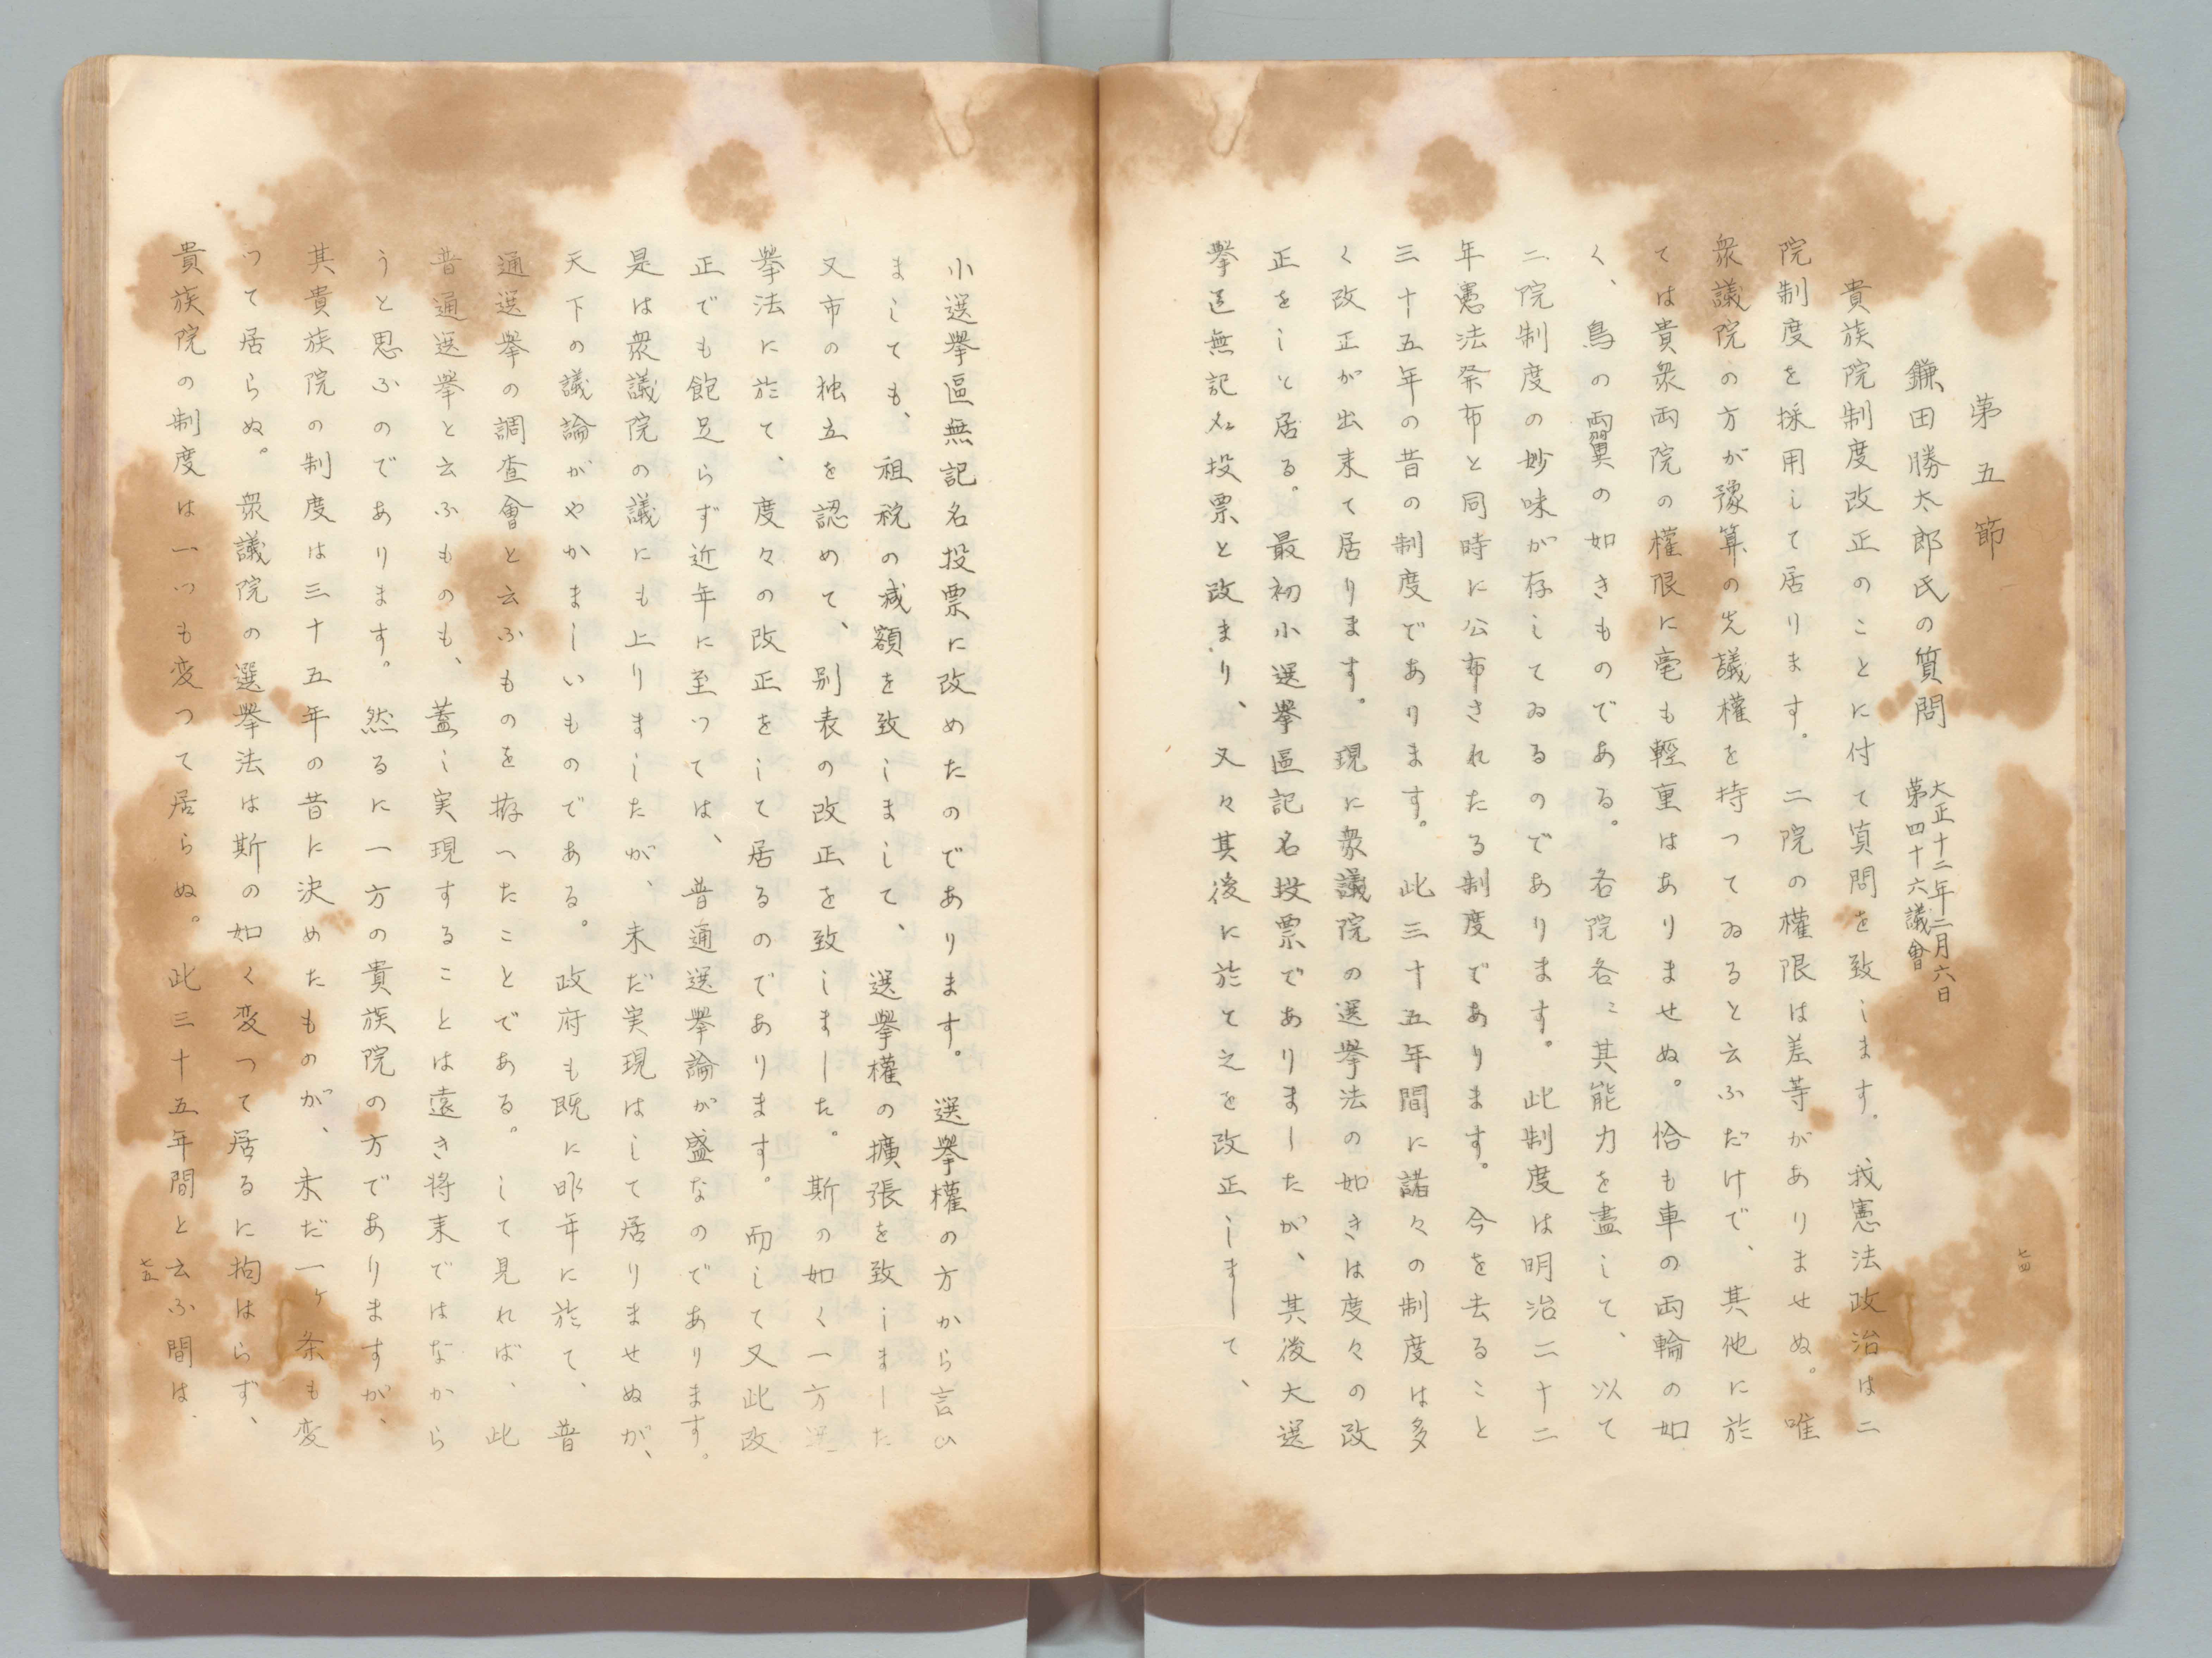 第五節
鎌田勝太郎氏の質問
大正十二年二月六日
第四十六議會
貴族院制度改正のことに付て質問を致します。我憲法政治は二
院制度を採用して居ります。二院の權限は差等がありませぬ。唯
衆議院の方が豫算の先議權を持つてゐると云ふだけで、其他に於
ては貴衆両院の權限に毫も輕重はありませぬ。恰も車の両輪の如
く、鳥の両翼の如きものである。各院各〻其能力を盡して、以て
二院制度の妙味が存してゐるのであります。此制度は明治二十二
年憲法発布と同時に公布されたる制度であります。今を去ること
三十五年の昔の制度であります。此三十五年間に諸々の制度は多
く改正が出来て居ります。現に衆議院の選挙法の如きは度々の改
正をして居る。最初小選擧區記名投票でありましたが、其後大選
擧區無記名投票と改まり、又々其後に於て之を改正しまして、
七四
小選擧區無記名投票に改めたのであります。選擧權の方から言ひ
ましても、租税の減額を致しまして、選擧權の擴張を致しました
又市の独立を認めて、別表の改正を致しました。斯の如く一方選
擧法に於て、度々の改正をして居るのであります。而して又此改
正でも飽足らず近年に至つては、普通選擧論が盛なのであります。
是は衆議院の議にも上りましたが、未だ実現はして居りませぬが、
天下の議論がやかましいものである。政府も既に昨年に於て、普
通選擧の調査會と云ふものを拵へたことである。して見れば、此
普通選擧と云ふものも、蓋し実現することは遠き将来ではなから
うと思ふのであります。然るに一方の貴族院の方でありますが、
其貴族院の制度は三十五年の昔に決めたものが、未だ一ヶ条も変
つて居らぬ。衆議院の選擧法は斯の如く変つて居るに拘はらず、
貴族院の制度は一つも変つて居らぬ。此三十五年間と云ふ間は、
七五